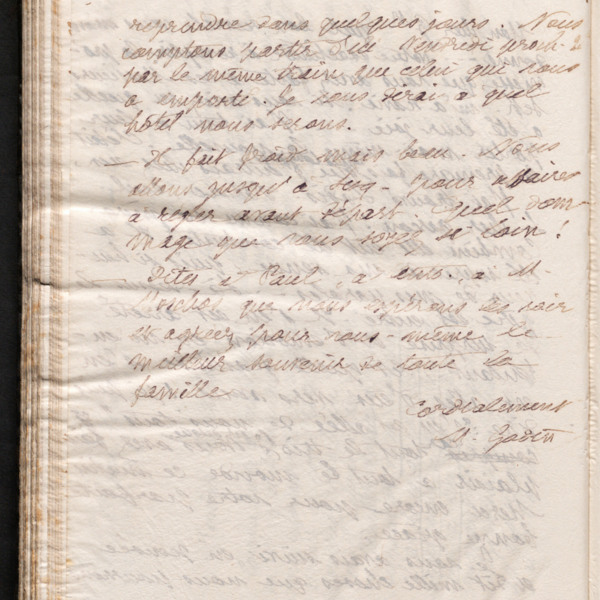 reprendre dans quelques jours. Nous
comptons partir d'ici Vendredi proch-
par le même train que celui qui nous
a emporté. Je vous dirai à quel
hôtel nous serons.
— Il fait froid mais beau. Nous
allons jusqu'à pour affaires
à régler avant départ. Quel dom-
mage que vous soyez si loin !
— Dites à Paul, à à M.
que nous espérons ce soir
et agréez pour vous-même le
meilleur souvenir de toute la
famille
Cordialement